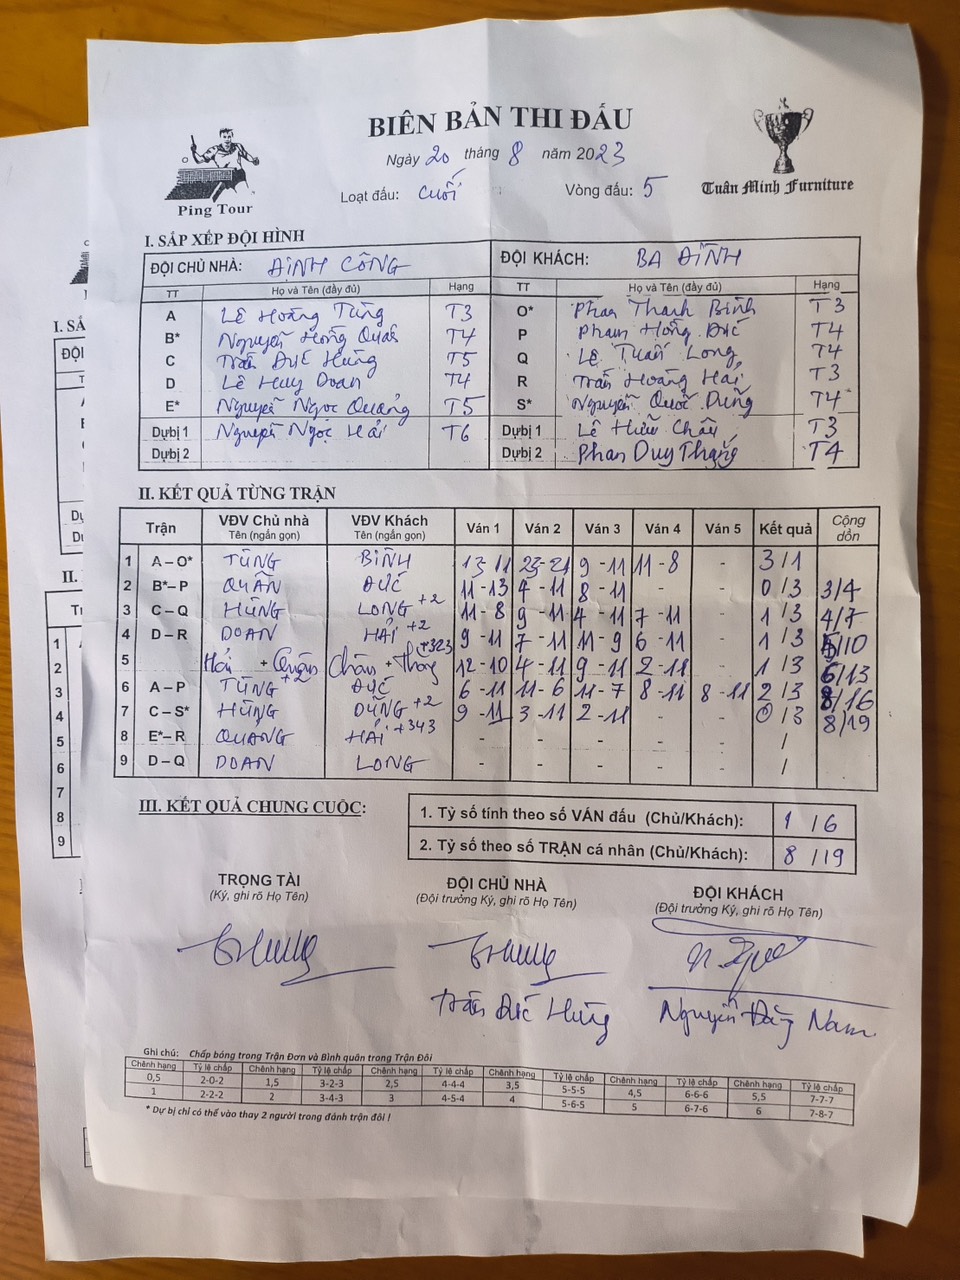 BIÊN BẢN THI ĐẤU
Ngày 20 tháng 8 năm 2023
Loạt đấu: Cuối Vòng đấu: 5
Ping Tour
Tuấn Minh Furniture
I. SẮP XẾP ĐỘI HÌNH
ĐỘI CHỦ NHÀ: ĐÌNH CÔNG ĐỘI KHÁCH: BA ĐÌNH
TT Họ và Tên (đầy đủ) Hạng TT Họ và Tên (đầy đủ) Hạng
A Lê Hoàng Tùng T3 O* Phan Thanh Bình T3
B* Nguyễn Hồng Quân T4 P Phạm Hồng Đức T4
C Trần Đức Hùng T5 Q Lê Tuấn Long T4
D Lê Huy Doan T4 R Trần Hoàng Hải T3
E* Nguyễn Ngọc Quảng T5 S* Nguyễn Quốc Dũng T4
Dự bị 1 Nguyễn Ngọc Hải T6 Dự bị 1 Lê Hữu Châu T3
Dự bị 2 Dự bị 2 Phan Duy Thắng T4
II. KẾT QUẢ TỪNG TRẬN
Trận VĐV Chủ nhà VĐV Khách Ván 1 Ván 2 Ván 3 Ván 4 Ván 5 Kết quả Cộng
Tên (ngắn gọn) Tên (ngắn gọn) dồn
1 A – O* TÙNG BÌNH 13 11 23-21 9 -11 11 - 8 - 3/1
2 B* – P QUÂN ĐỨC 11 - 13 4 - 11 8 -11 - - 0/3 3/4
3 C – Q HÙNG LONG +2 11 - 8 9 - 11 4 - 11 7 - 11 - 1/3 4/7
4 D – R DOAN HẢI +2 9 - 11 7 - 11 11 - 9 6 - 11 - 1/3 5/10
5 Hải + Quân +2 Châu + +323 12 - 10 4 - 11 9 - 11 2 - 11 - 1/3 6/13
6 A – P TÙNG ĐỨC 6 - 11 11 - 6 11 - 7 8 - 11 8 - 11 2/3 8/16
7 C – S* HÙNG DŨNG +2 9 - 11 3 - 11 2 - 11 - - 0/3 8/19
8 E* – R QUẢNG HẢI +343 - - - - - /
9 D – Q DOAN LONG - - - - - /
III. KẾT QUẢ CHUNG CUỘC:
1. Tỷ số tính theo số VÁN đấu (Chủ/Khách): 1 / 6
2. Tỷ số theo số TRẬN cá nhân (Chủ/Khách): 8 / 19
TRỌNG TÀI ĐỘI CHỦ NHÀ ĐỘI KHÁCH
(Ký, ghi rõ Họ Tên) (Đội trưởng Ký, ghi rõ Họ Tên) (Đội trưởng Ký, ghi rõ Họ Tên)
Trần Đức Hùng Nguyễn Đăng Nam
Ghi chú: Chấp bóng trong Trận Đơn và Bình quân trong Trận Đôi
Chênh hạng Tỷ lệ chấp Chênh hạng Tỷ lệ chấp Chênh hạng Tỷ lệ chấp Chênh hạng Tỷ lệ chấp Chênh hạng Tỷ lệ chấp Chênh hạng Tỷ lệ chấp
0,5 2-0-2 1,5 3-2-3 2,5 4-4-4 3,5 5-5-5 4,5 6-6-6 5,5 7-7-7
1 2-2-2 2 3-4-3 3 4-5-4 4 5-6-5 5 6-7-6 6 7-8-7
* Dự bị chỉ có thể vào thay 2 người trong đánh trận đôi !